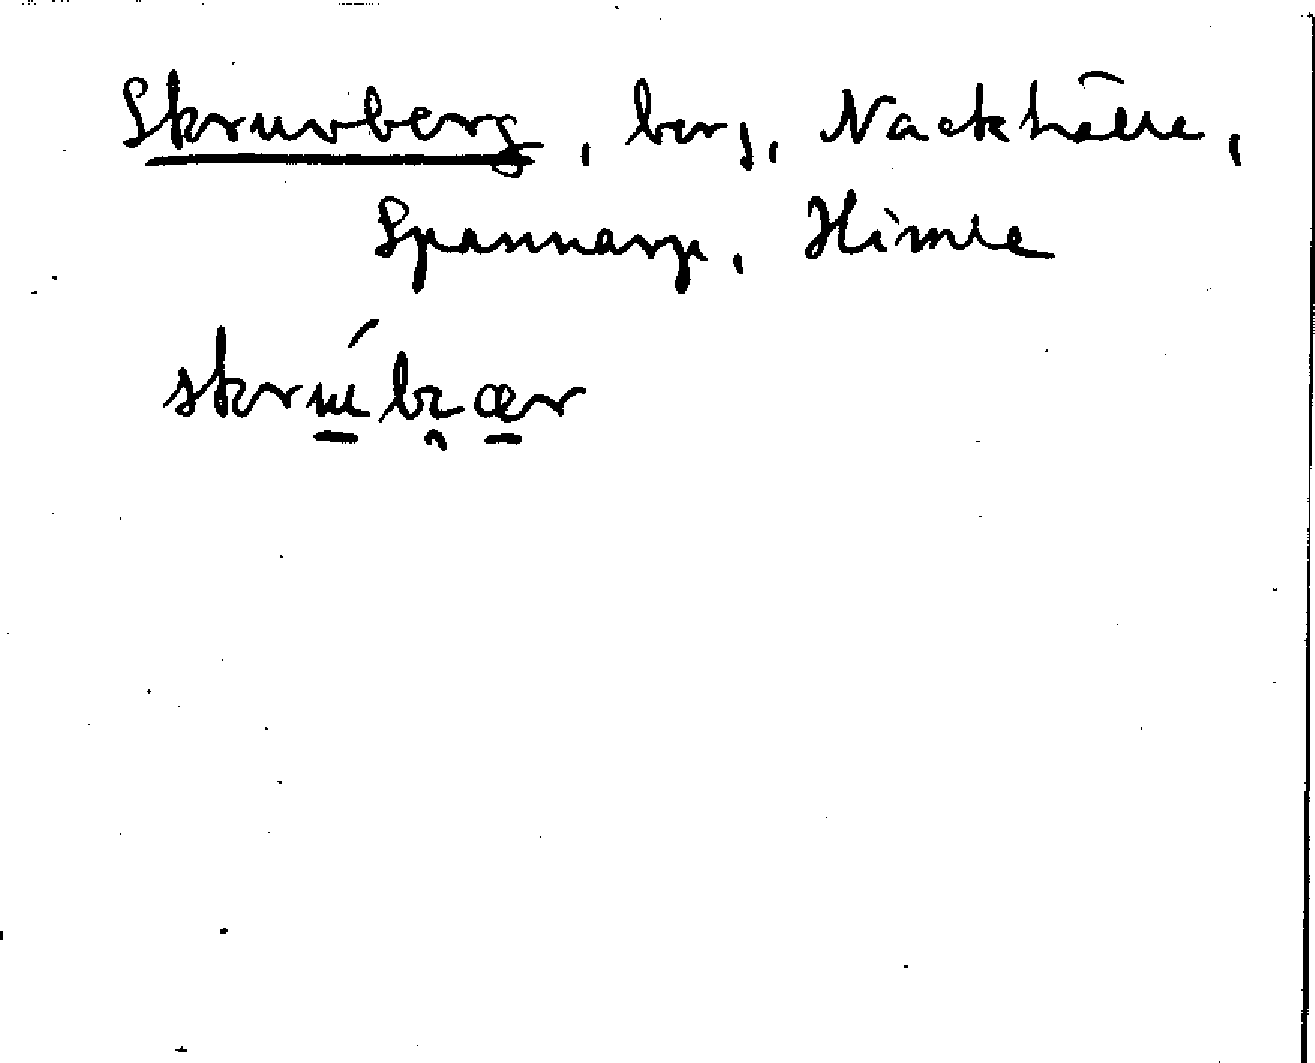 Skruvberg, berg, Nackhälle,
Spannarp, Himle